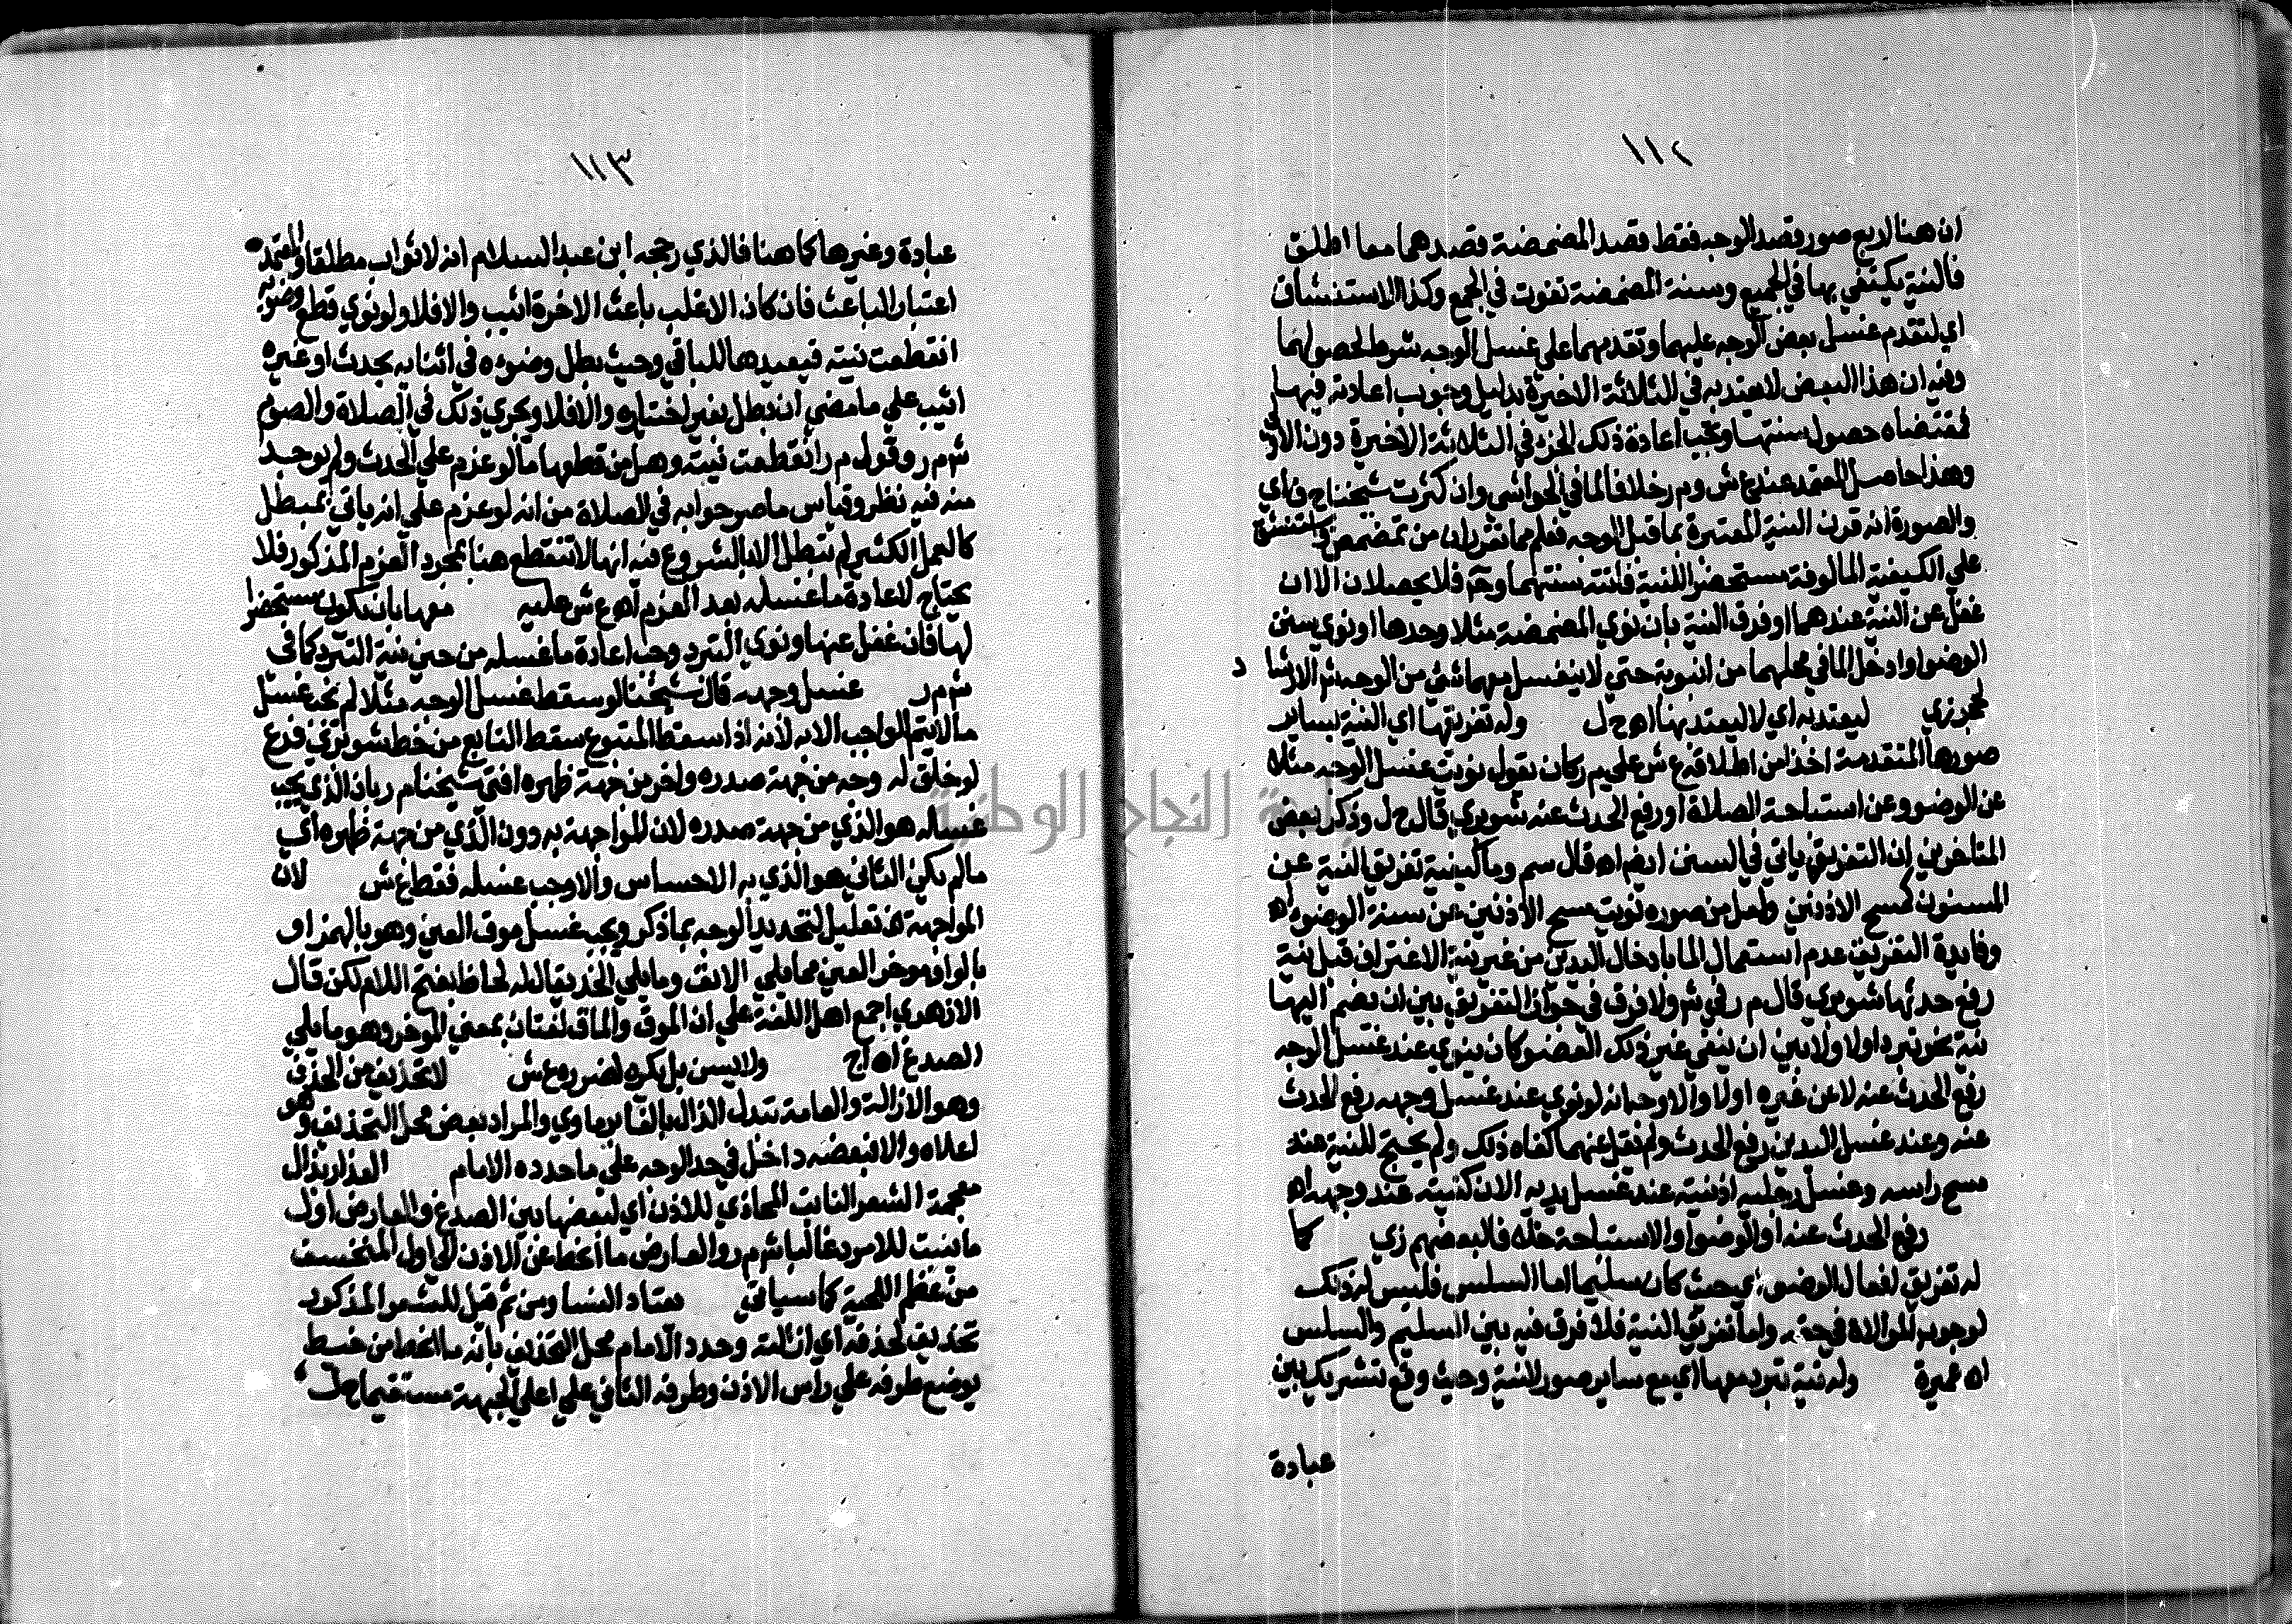 ١١٢
ان هنا اربع صور قصد الوجه فقط قصد المضمضة قصدهما معا اطلق
فالنية يكتفي بها في الجميع وسنة المضمضة تفوت في الجمع وكذا الاستنشاق
اي لتقدم غسل بعض الوجه عليهما وتقديمهما علي غسل الوجه شرط لحصولهما
وفيه ان هذا البعض لا يعتد به في الثلاثة الاخيرة بدليل وجوب اعادته فيها
فمقتضاه حصول سنتهما ويجب اعادة ذلك الجزء في الثلاثة الاخيرة دون الاولي
وهذا حاصل المعتمد عند ع ش وم ر خلافا لما في الحواشي وان كثرت شيخنا ح ف اي
والصورة انه قرن النية المعتبرة بما قبل الوجه فعلم مما تقرر ان من تمضمض واستنشق
علي الكيفية المالوفة مستحضرا للنية فاتته سنتهما وحينئذ فلا يحصلان الا ان
غفل عن النية عندهما او فرق النية بان نوي المضمضة مثلا وحدها او نوي سنن
الوضوء او ادخل الماء في محلهما من انبوبة حتي لا ينغسل معهما شئ من الوجه ش الارشاد
لحجر زي ليعتد به اي لا ليعتد بها اهـ ح ل وله تفريقها اي النية بساير
صورها المتقدمة اخذا من اطلاقه ع ش علي م ر كان يقول نويت غسل الوجه مثلا
عن الوضوء وعن استباحة الصلاة او رفع الحدث عنه شوبري قال ح ل وذكر بعض
المتاخرين ان التفريق ياتي في السنن ايضا اهـ قال سم وما كيفية تفريق النية عن
المسنون كمسح الاذنين ولعل من صوره نويت مسح الاذنين عن سنة الوضوء اهـ
وفايدة التفريق عدم استعمال الماء بادخال اليدين من غير نية الاغتراف قبل نية
رفع حدثها شوبري قال م ر في ش ولا فرق في جواز التفريق بين ان يضم اليها
نية نحو تبرد اولا ولا بين ان ينفي غير ذلك العضو كان ينوي عند غسل الوجه
رفع الحدث عنه لا عن غيره اولا والاوجه انه لو نوي عند غسل وجهه رفع الحدث
عنه وعند غسل اليدين رفع الحدث ولم يقل عنهما كفاه ذلك ولم يحتج للنية عند
مسح راسه وغسل رجليه اذ نيته عند غسل يديه الان كنيته عند وجهه اهـ
رفع الحدث عنه او الوضوء او الاستباحة خلافا لبعضهم زي كما
له تفريق افعال الوضوء اي حيث كان سليما اما السلس فليس له ذلك
لوجوب الموالاة في حقه واما تفريق النية فلا فرق فيه بين السليم والسلس
اهـ عميرة وله نية تبرد معها اي مع ساير صور النية وحيث وقع تشريك بين
عبادة
١١٣
عبادة وغيرها كما هنا فالذي رجحه ابن عبد السلام انه لا ثواب مطلقا والمعتمد
اعتبار الباعث فان كان الاغلب باعث الاخرة اثيب والا فلا ولو نوي قطع وضوئه
انقطعت نيته فيعيدها للباقي وحيث بطل وضوءه في اثنايه بحدث او غيره
اثيب علي ما مضي ان بطل بغير اختياره والا فلا ويجري ذلك في الصلاة والصوم
ش م ر وقول م ر انقطعت نيته وهل من قطعها ما لو عزم علي الحدث ولم يوجد
منه فيه نظر وقياس ما صرحوا به في الصلاة من انه لو عزم علي انه ياتي بمبطل
كالعمل الكثير لم تبطل الا بالشروع فيه انها لا تنقطع هنا بمجرد العزم المذكور فلا
يحتاج لاعادة ما غسله بعد العزم اهـ ع ش عليه معها بان يكون مستحضرا
لها فان غفل عنها ونوي التبرد وجب اعادة ما غسله من حين نية التبرد كما في
ش م ر غسل وجهه قال شيخنا لو سقط غسل الوجه مثلا لم يجب غسل
ما لا يتم الواجب الا به لانه اذا سقط المتبوع سقط التابع من خط شوبري فرع
لو خلق له وجه من جهة صدره واخر من جهة ظهره افتي شيخنا م ر بان الذي يجب
غسله هو الذي من جهة صدره لان المواجهة به دون الذي من جهة ظهره اي
ما لم يكن الثاني هو الذي به الاحساس والا وجب غسله فقط ع ش لان
المواجهة الخ تعليل لتحديد الوجه بما ذكر ويجب غسل موق العين وهو بالهمز او
بالواو موخر العين مما يلي الانف وما يلي الخد يقال له لحاظ بفتح اللام لكن قال
الازهري اجمع اهل اللغة علي ان الموق والماق لغتان بمعني الموخر وهو ما يلي
الصدغ اهـ اج ولا يسن بل يكره لضرره ع ش لا تحذيف من الحذف
وهو الازالة والعامة تبدل الذال بالفا برماوي والمراد بعض محل التحذيف وهو
اعلاه والا فبعضه داخل في حد الوجه علي ما حدده الامام العذار بذال
معجمة الشعر النابت المحاذي للاذن اي لبعضها بين الصدغ والعارض اول
ما ينبت للامرد غالبا ش م ر والعارض ما انحط عن الاذن الي اول المنخسف
من عظم اللحية كما سياتي يعتاد النسا ومن ثم قيل للشعر المذكور
تحذيف لحذفه اي ازالته وحدد الامام محل التحذيف بانه ما انحط من خيط
يوضع طرفه علي راس الاذن وطرفه الثاني علي اعلي الجبهة مستقيما ح ل